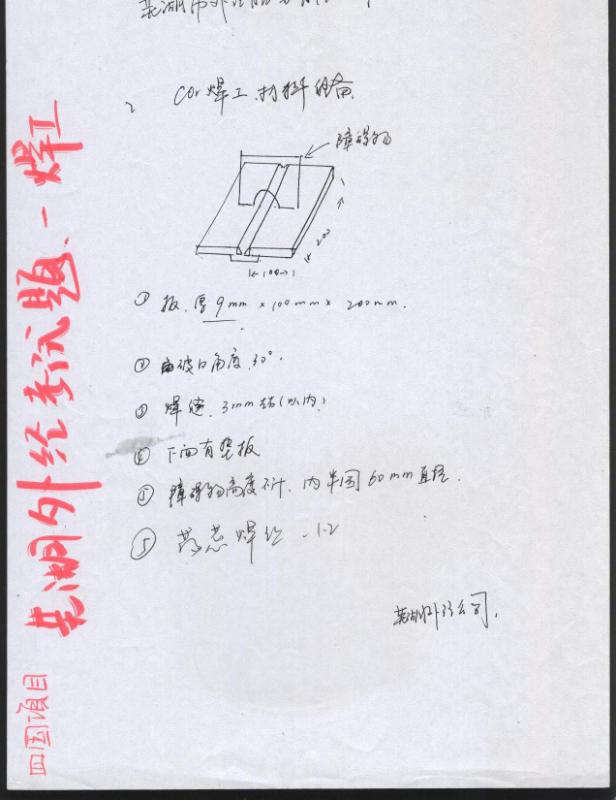 芜湖市外经
2 CO2 焊工.材料准备
障碍物
200
100
① 板.厚 9mm × 100mm × 200mm.
② 破口角度.30°.
③ 焊缝.3mm 左右(以内)
④ 下面有垫板
⑤ 障碍物高度不计.内半圆 60mm 直径.
⑤ 药芯焊丝 -1.2
芜湖外经公司.
芜湖外经考试题.一焊工
四国项目